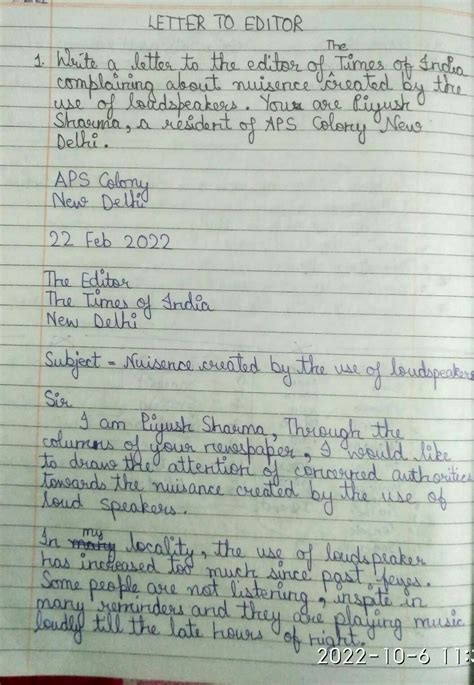 LETTER TO EDITOR
The
1. Write a letter to the editor of Times of India
complaining about nuisence created by the
use of loudspeakers. You are Piyush
Sharma, a resident of APS Colony New
Delhi.
APS Colony
New Delhi
22 Feb 2022
The Editor
The Times of India
New Delhi
Subject = Nuisence created by the use of loudspeakers
Sir
I am Piyush Sharma, Through the
columns of your newspaper, I would like
to draw the attention of concerned authorities
towards the nuisance created by the use of
loud speakers.
my
In locality, the use of loudspeaker
has increased too much since past
Some people are not listening, inspite in
many reminders and they are playing music
loudly till the late hours of night.
2022-10-6 11:3